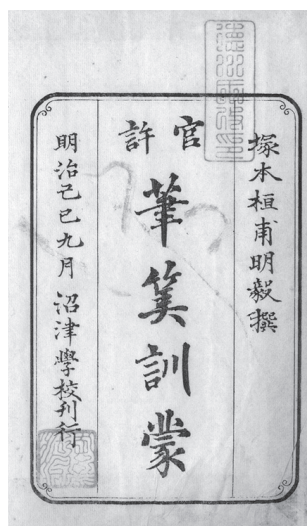 塚本桓甫明毅撰
官許
筆算訓蒙
明治己巳九月 沼津學校刋行